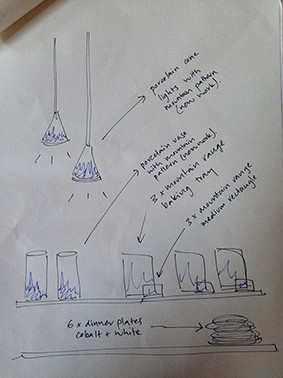 porcelain cone
lights with
mountain pattern
(new work).
porcelain vase
with mountain
pattern (new work).
3 x mountain range
baking tray
3 x mountain range
medium rectangle
6 x dinner plates
cobalt + white